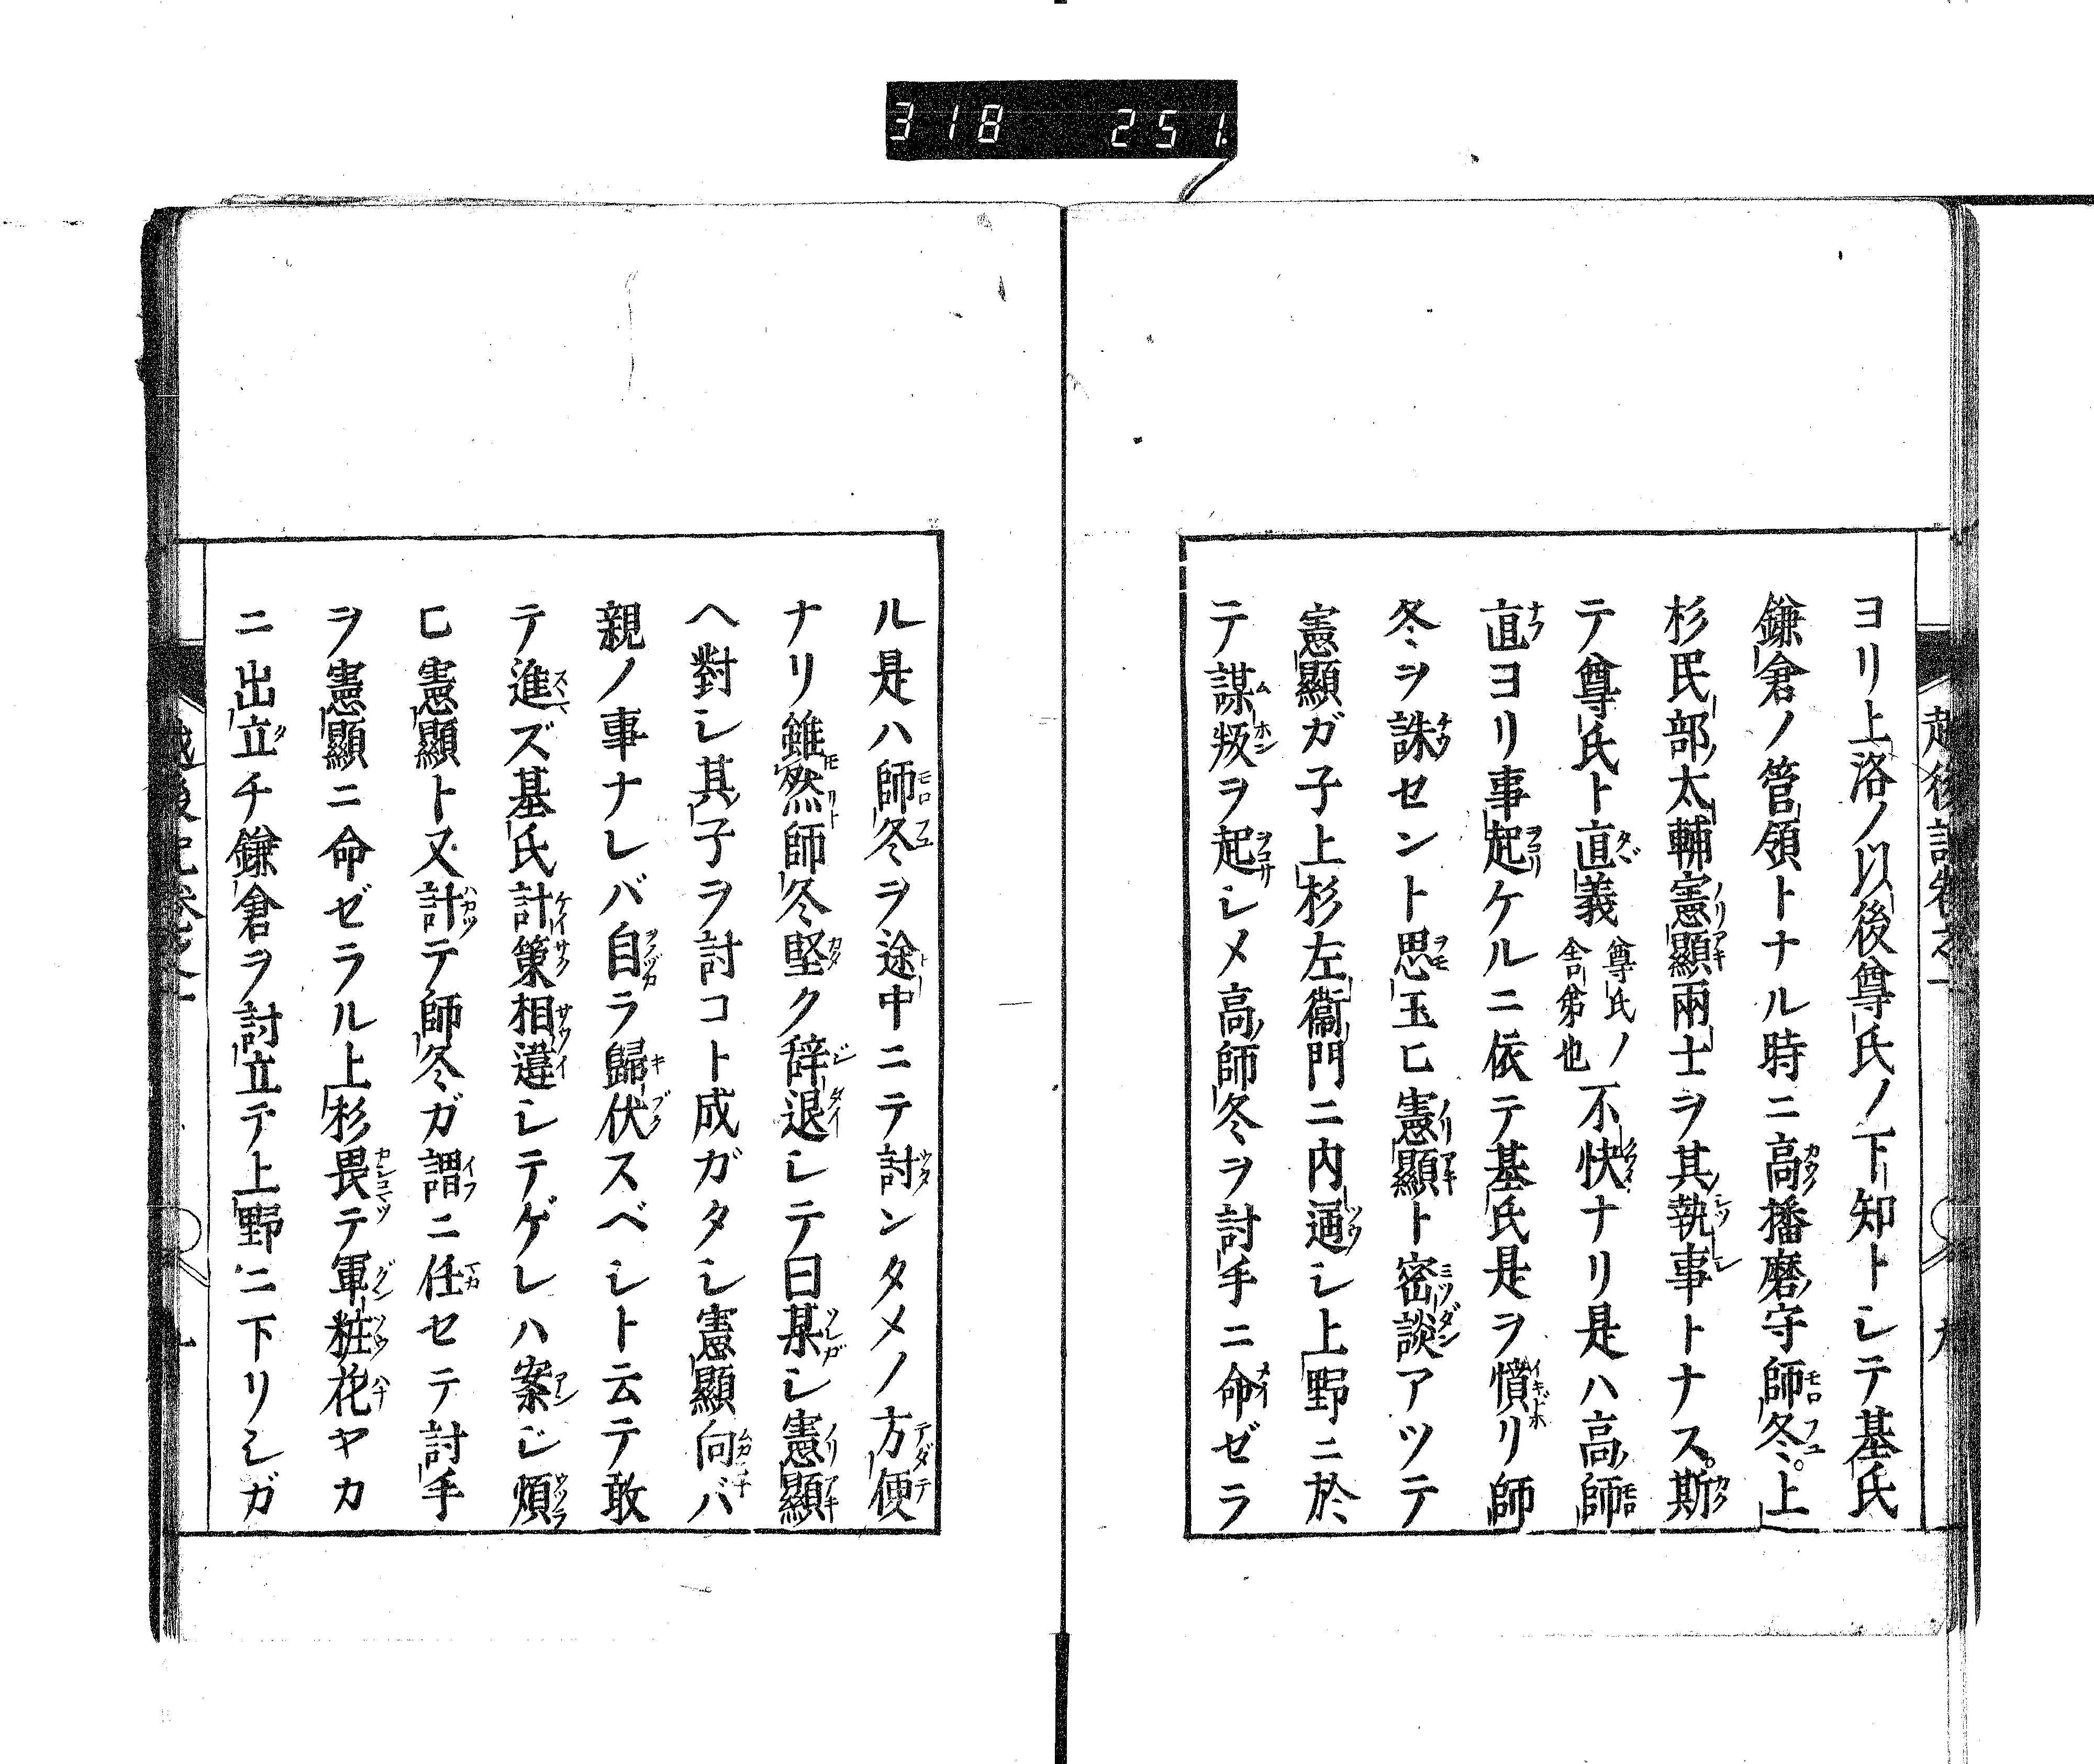 318 251
ヨリ上洛ノ以後尊氏ノ下知トシテ基氏
鎌倉ノ管領トナル時ニ高播磨守師冬。上
杉民部太輔憲顯兩士ヲ其執事トナス。斯
テ尊氏ト直義尊氏ノ舎弟也不快ナリ是ハ高師
直ヨリ事起ケルニ依テ基氏是ヲ憤リ師
冬ヲ誅セント思玉ヒ憲顯ト密談アツテ
憲顯ガ子上杉左衞門ニ内通シ上野ニ於
テ謀叛ヲ起シメ高師冬ヲ討手ニ命ゼラ
ル是ハ師冬ヲ途中ニテ討ンタメノ方便
ナリ雖然師冬堅ク辞退シテ曰某シ憲顯
ヘ對シ其子ヲ討コト成ガタシ憲顯向バ
親ノ事ナレバ自ラ歸伏スベシト云テ敢
テ進ズ基氏計策相違シテゲレハ案ジ煩
ヒ憲顯ト又計テ師冬ガ謂ニ任セテ討手
ヲ憲顯ニ命ゼラル上杉畏テ軍粧花ヤカ
ニ出立チ鎌倉ヲ討立テ上野ニ下リシガ